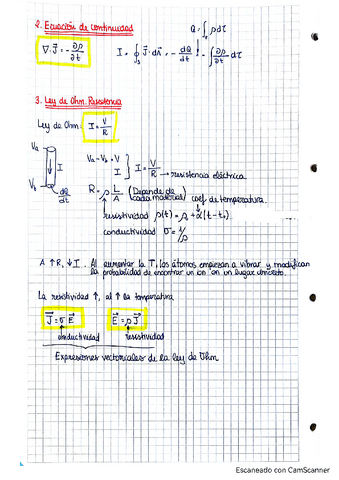 2. Ecuación de continuidad
Q = ∫τ ρdτ
∇·J⃗ = - ∂ρ/∂t
I = ∮s J⃗·dA⃗ = - dQ/dt = - ∫ ∂ρ/∂t dτ
3. Ley de Ohm. Resistencia
Ley de Ohm: I = V/R
Va
Vb
I
dQ/dt
Va - Vb = V
I
} I = V/R → resistencia eléctrica
R = ρ L/A (Depende de cada material) coef. de temperatura.
resistividad ρ(t) = ρ₀ + α(t - t₀)
conductividad σ = 1/ρ
A ↑R, ↓I. Al aumentar la T, los átomos empiezan a vibrar y modifican
la probabilidad de encontrar un ion en un lugar concreto.
La resistividad ↑, al ↑ la temperatura
J⃗ = σ E⃗
E⃗ = ρ J⃗
conductividad
resistividad
Expresiones vectoriales de la ley de Ohm
Escaneado con CamScanner